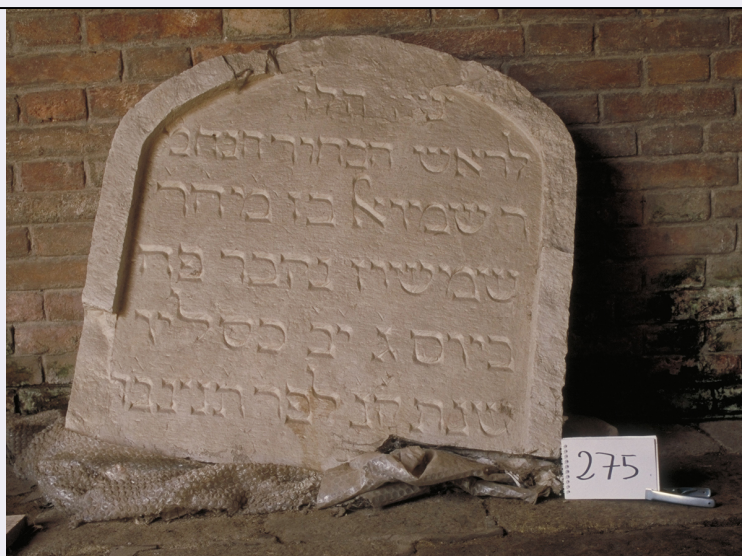 הלז
לראש הבחור הנחמ
ד שמואל בן
שמישון נקבר פה
ביום ג יב כסליו
שנת לפק תנצבה
275